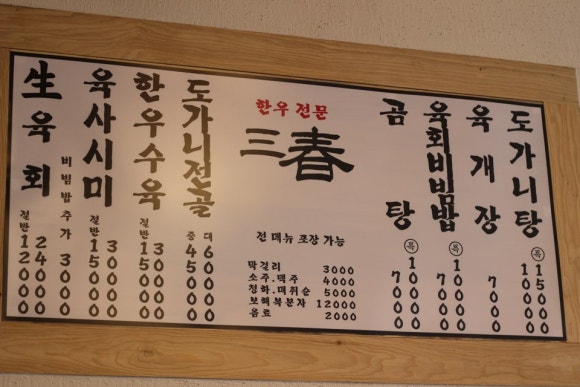 生육회
절반 12000
24000
비빔밥추가 3000
육사시미
절반 15000
30000
한우수육
절반 15000
30000
도가니전골
중 45000
대 60000
한우 전문
三春
전 메뉴 포장 가능
막걸리 3000
소주.맥주 4000
청하.매취순 5000
보해복분자 12000
음료 2000
곰탕
7000
특 10000
육회비빔밥
7000
특 10000
육개장
7000
도가니탕
10000
특 15000